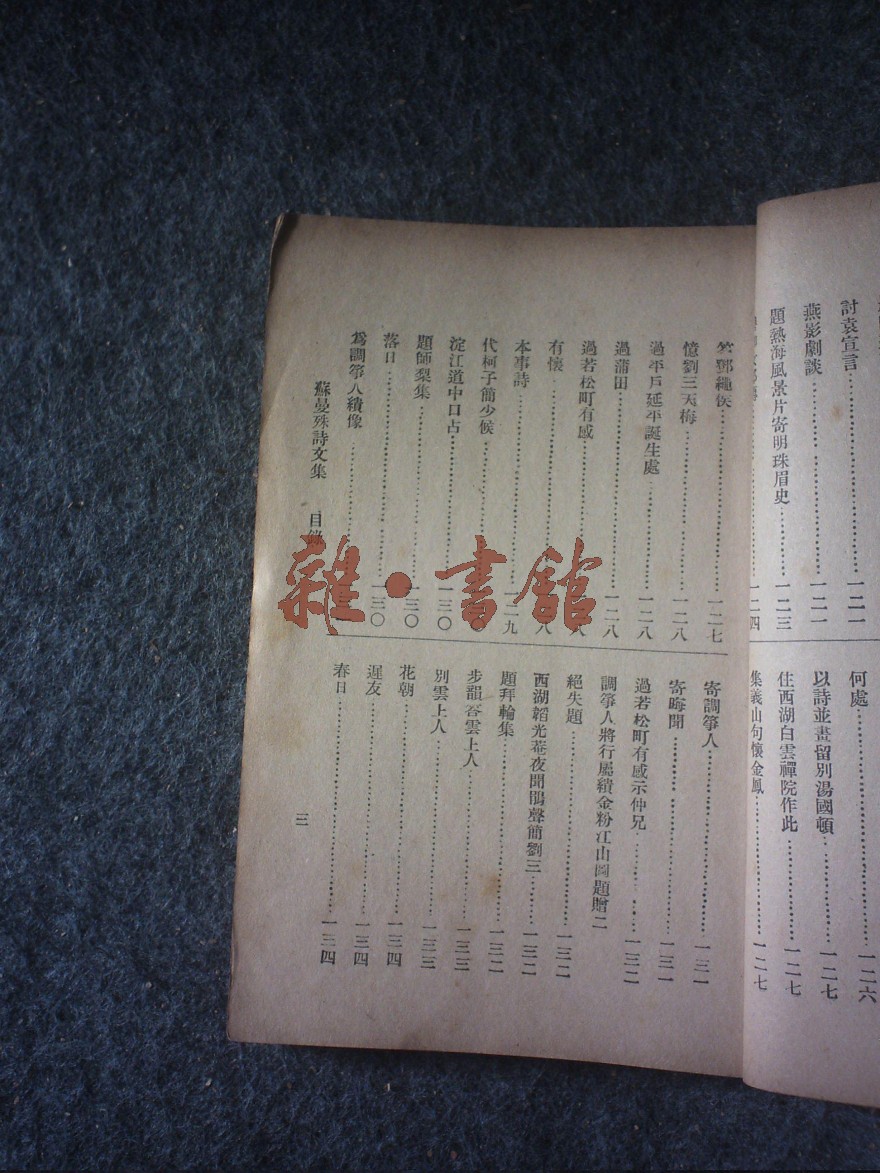 討袁宣言……一二一
燕影劇談……一二一
題熱海風景片寄明珠眉史……一二三
一二四
何處……一二六
以詩並畫留別湯國頓……一二七
住西湖白雲禪院作此……一二七
集義山句懷金鳳……一二七
答鄧繩侯……一二七
憶劉三天梅……一二八
過平戶延平誕生處……一二八
過蒲田……一二八
過若松町有感……八
有懷……八
本事詩……一二九
代柯子簡少候
淀江道中口占……一三〇
題師梨集……一三〇
落日……一三〇
爲調箏人繢像
寄調箏人……一三一
寄晦聞……一三一
過若松町有感示仲兄……一三二
調箏人將行屬繢金粉江山圖題贈二
絕失題……一三二
西湖韜光菴夜聞鵑聲簡劉三……一三二
題拜輪集……一三二
步韻答雲上人……一三三
別雲上人……一三三
花朝……一三四
遲友……一三四
春日……一三四
蘇曼殊詩文集 目錄
三
雜·書館